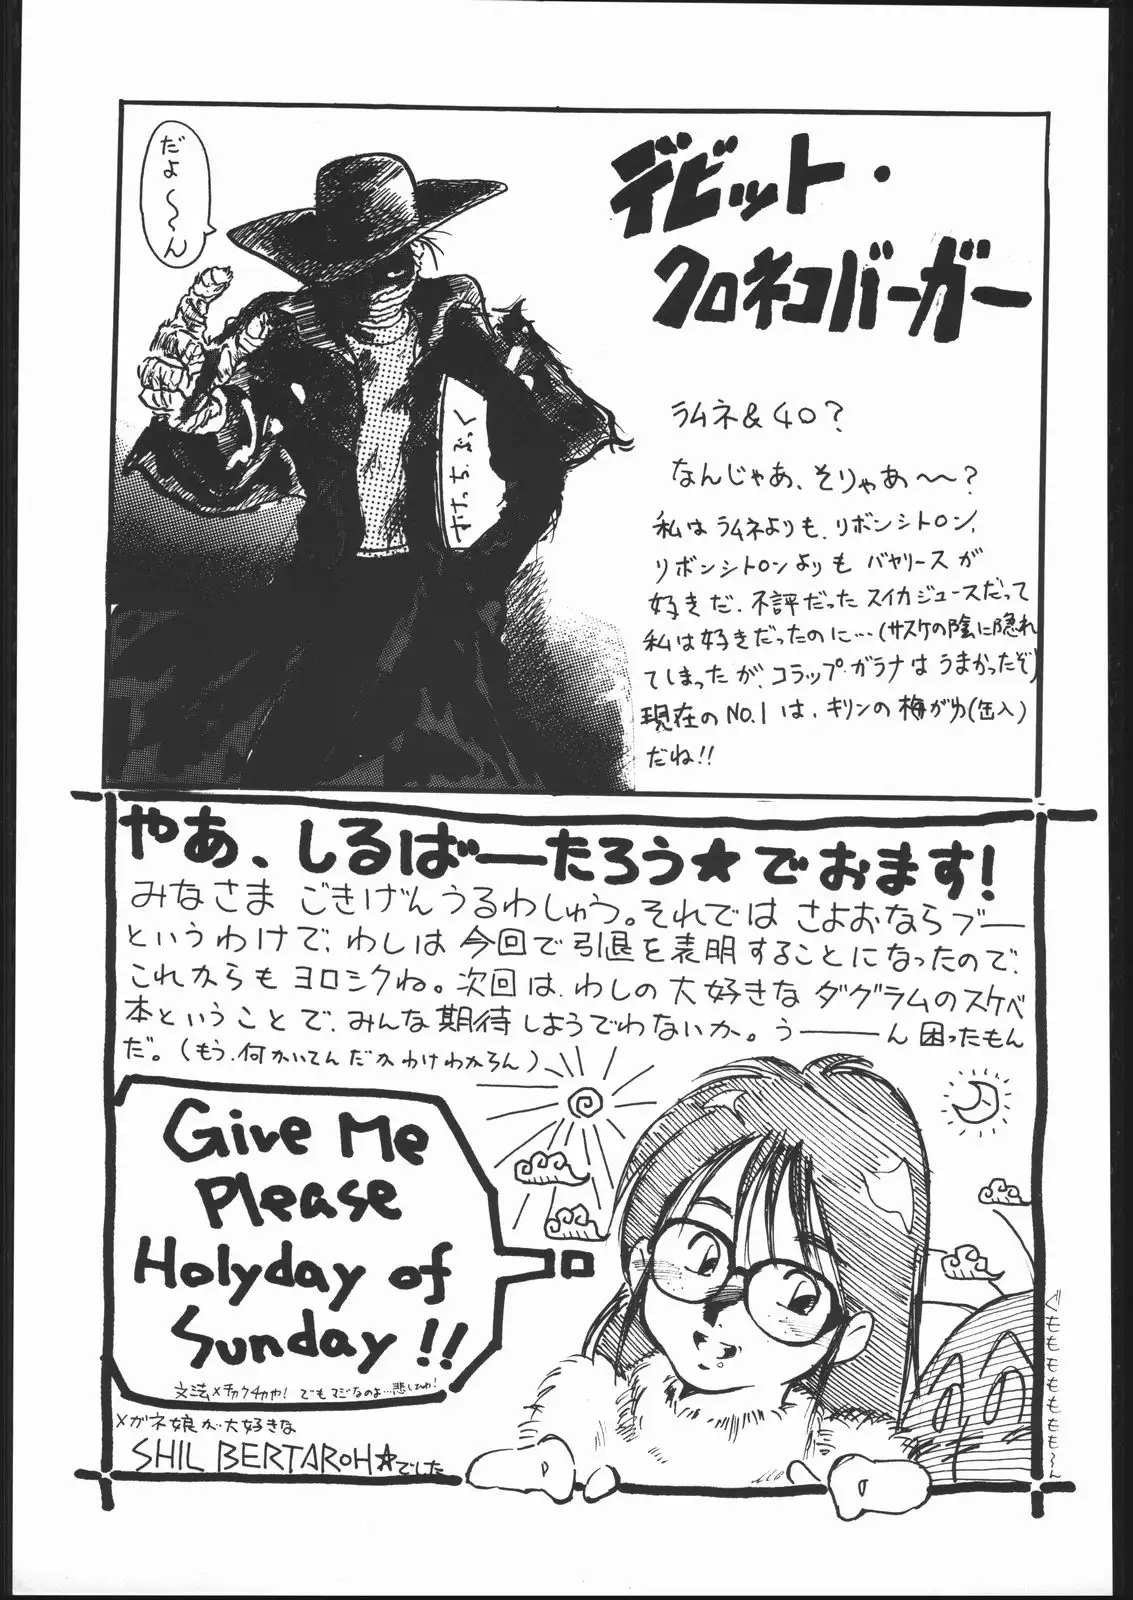 だよ〜〜ん
デビット・
クロネコバーガー
すけっちぶっく
ラムネ&40?
なんじゃあ、そりゃあ〜〜?
私はラムネよりも、リボンシトロン、
リボンシトロンよりもバヤリースが
好きだ、不評だったスイカジュースだって
私は好きだったのに…(サスケの陰に隠れ
てしまったが、コラップ・ガラナはうまかったぞ)
現在のNO.1は、キリンの梅がわ(缶入)
だね!!
やあ、しるばーたろう★でおます!
みなさまごきげんうるわしゅう。それではさよおならブー
というわけで、わしは今回で引退を表明することになったので、
これからもヨロシクね。次回は、わしの大好きなダグラムのスケベ
本ということで、みんな期待しようでわないか。う――ん困ったもん
だ。(もう、何かいてんだかわけわからん)
Give Me
Please
Holyday of
Sunday!!
文法メチャクチャや! でもマジなのよ…悲しいわ!
メガネ娘が大好きな
SHIL BERTAROH☆でした
ぐももももももも〜ん